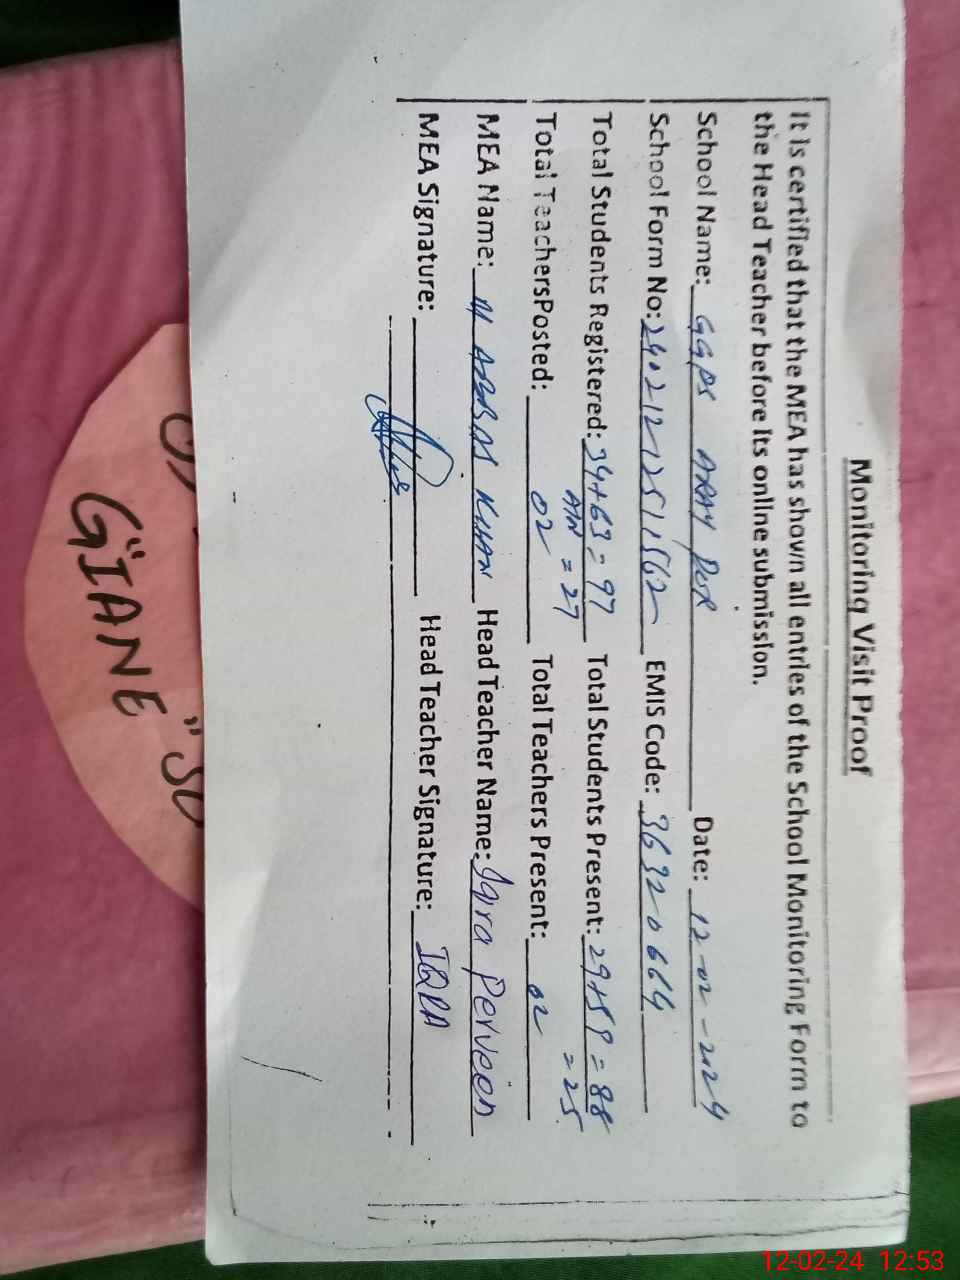 Monitoring Visit Proof
It is certified that the MEA has shown all entries of the School Monitoring Form to
the Head Teacher before its online submission.
School Name: GGPS ARAY PUR Date: 12-02-2024
School Form No: 24021212511562 EMIS Code: 36320664
Total Students Registered: 34+63=97 Total Students Present: 29+59=88
= 27 = 25
Total TeachersPosted: 02 Total Teachers Present: 02
MEA Name: M ABBAS KHAN Head Teacher Name: Iqra Perveen
MEA Signature: Head Teacher Signature: IQRA
"GIANE"
12-02-24 12:53